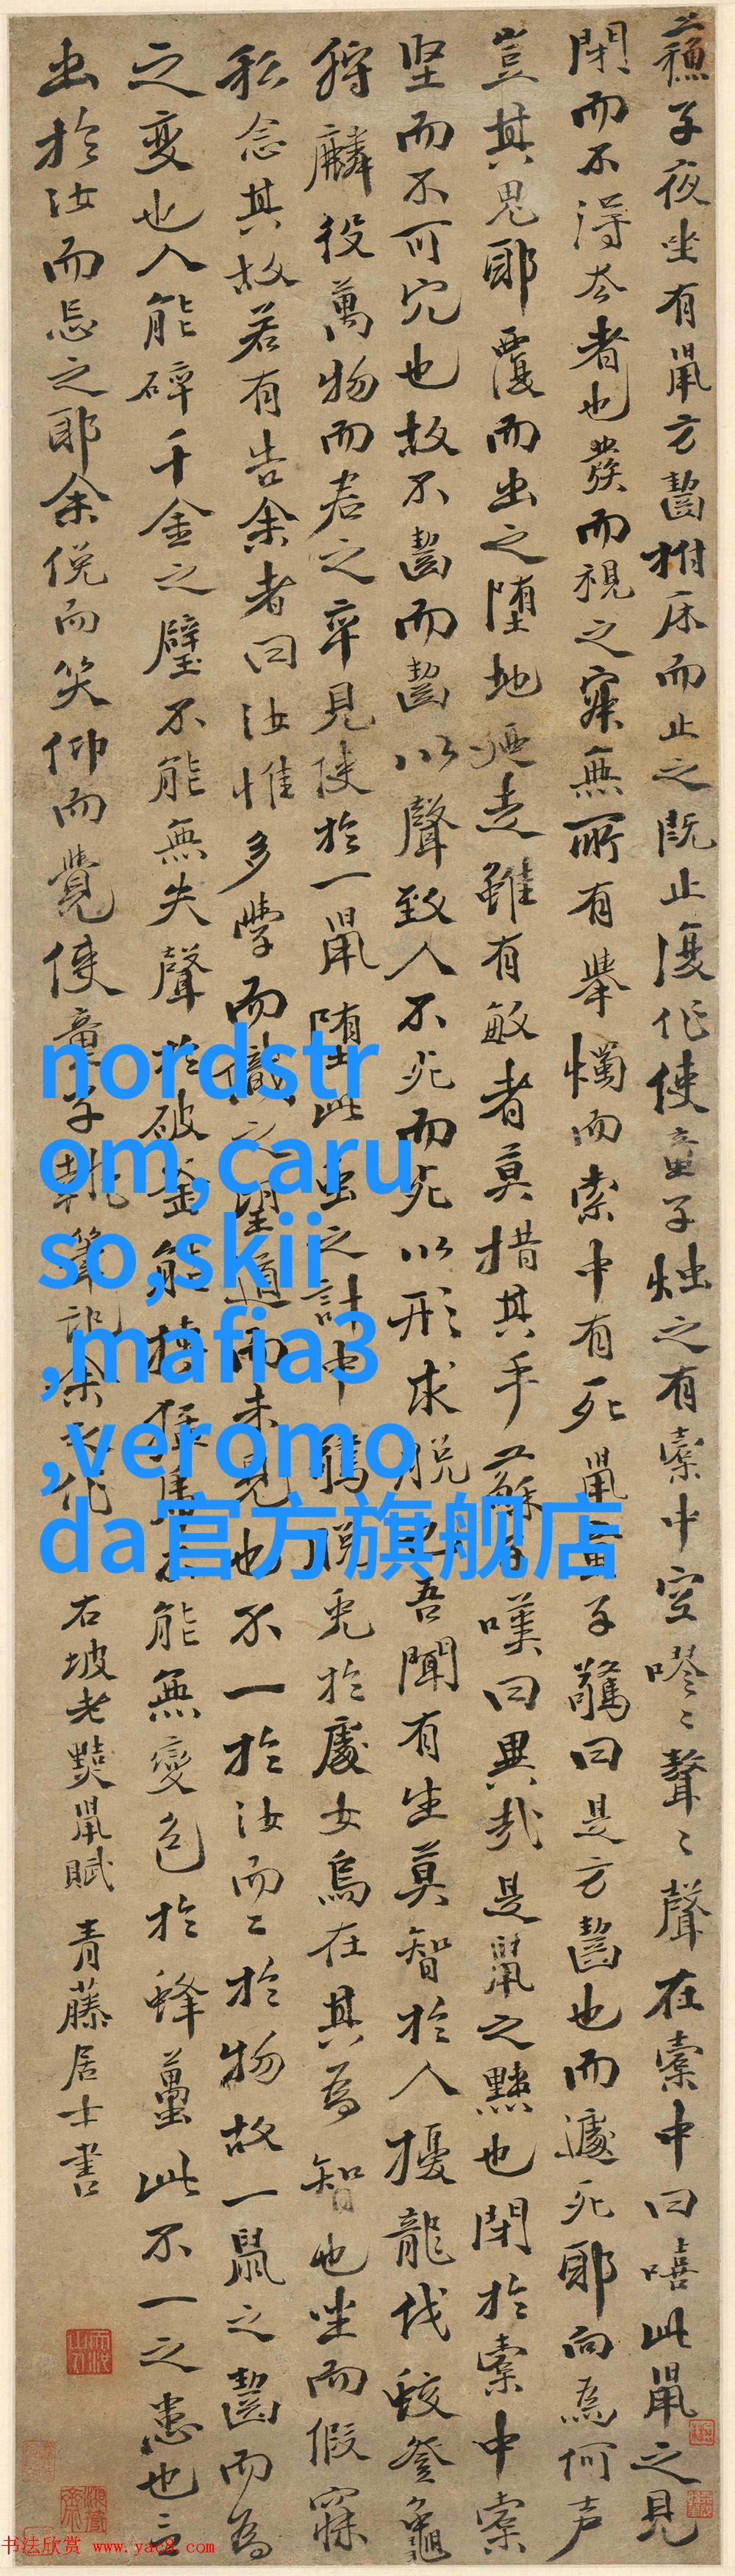 蘇子夜坐有鼠方齧拊床而止之既止復作使童子燭之有橐中空嘐〻聱〻聲在橐中曰嘻此鼠之見
閉而不得去者也發而視之寂無所有舉燭而索中有死鼠童子驚曰是方齧也而遽死耶向為何声
豈其鬼耶覆而出之堕地廼走雖有敏者莫措其手蘇子嘆曰異哉是鼠之黠也閉於橐中橐
坚而不可穴也故不齧而齧以聲致人不死而死以形求脫也吾聞有生莫智於人擾龍伐蛟登龜
狩麟役萬物而君之卒見使於一鼠堕此虫之計中驚脫兎於處女烏在其為智也坐而假寐
私念其故若有告余者曰汝惟多學而識之望道而未見也不一於汝而二於物故一鼠之齧而為
之變也人能碎千金之璧不能無失聲於破釜能搏猛虎不能無變色於蜂蠆此不一之患也言
出於汝而忘之耶余俛而笑仰而覺使童子執筆記余之作 右坡老黠鼠賦 青藤居士書
nordstr
om,caru
so,skii
,mafia3
,veromo
da官方旗舰店
书法欣赏 www.yac8.com